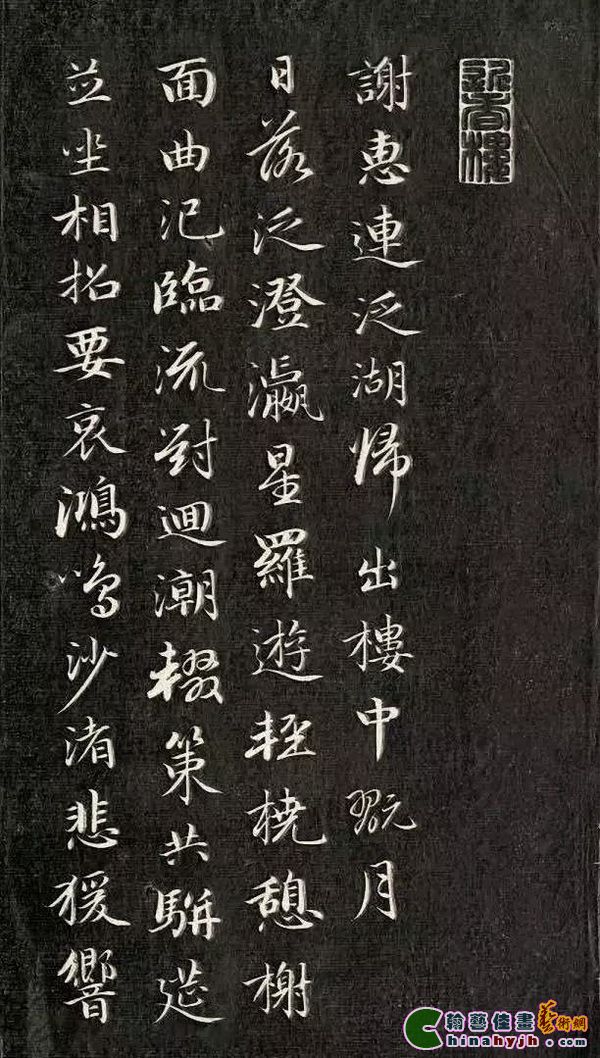 謝惠連泛湖歸出樓中翫月
日落泛澄瀛星羅遊輕橈憩榭
面曲汜臨流對迴潮輟策共駢筵
並坐相招要哀鴻鳴沙渚悲猨響
翰藝佳畫藝術網
Chinahyjh.com